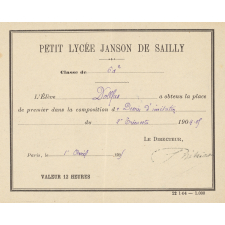 PETIT LYCÉE JANSON DE SAILLY
Classe de
L'Élève Dolfus a obtenu la place
de premier dans la composition de Dessin d'imitation
du 2e Trimestre 190
LE DIRECTEUR,
Paris, le Avril
VALEUR 12 HEURES